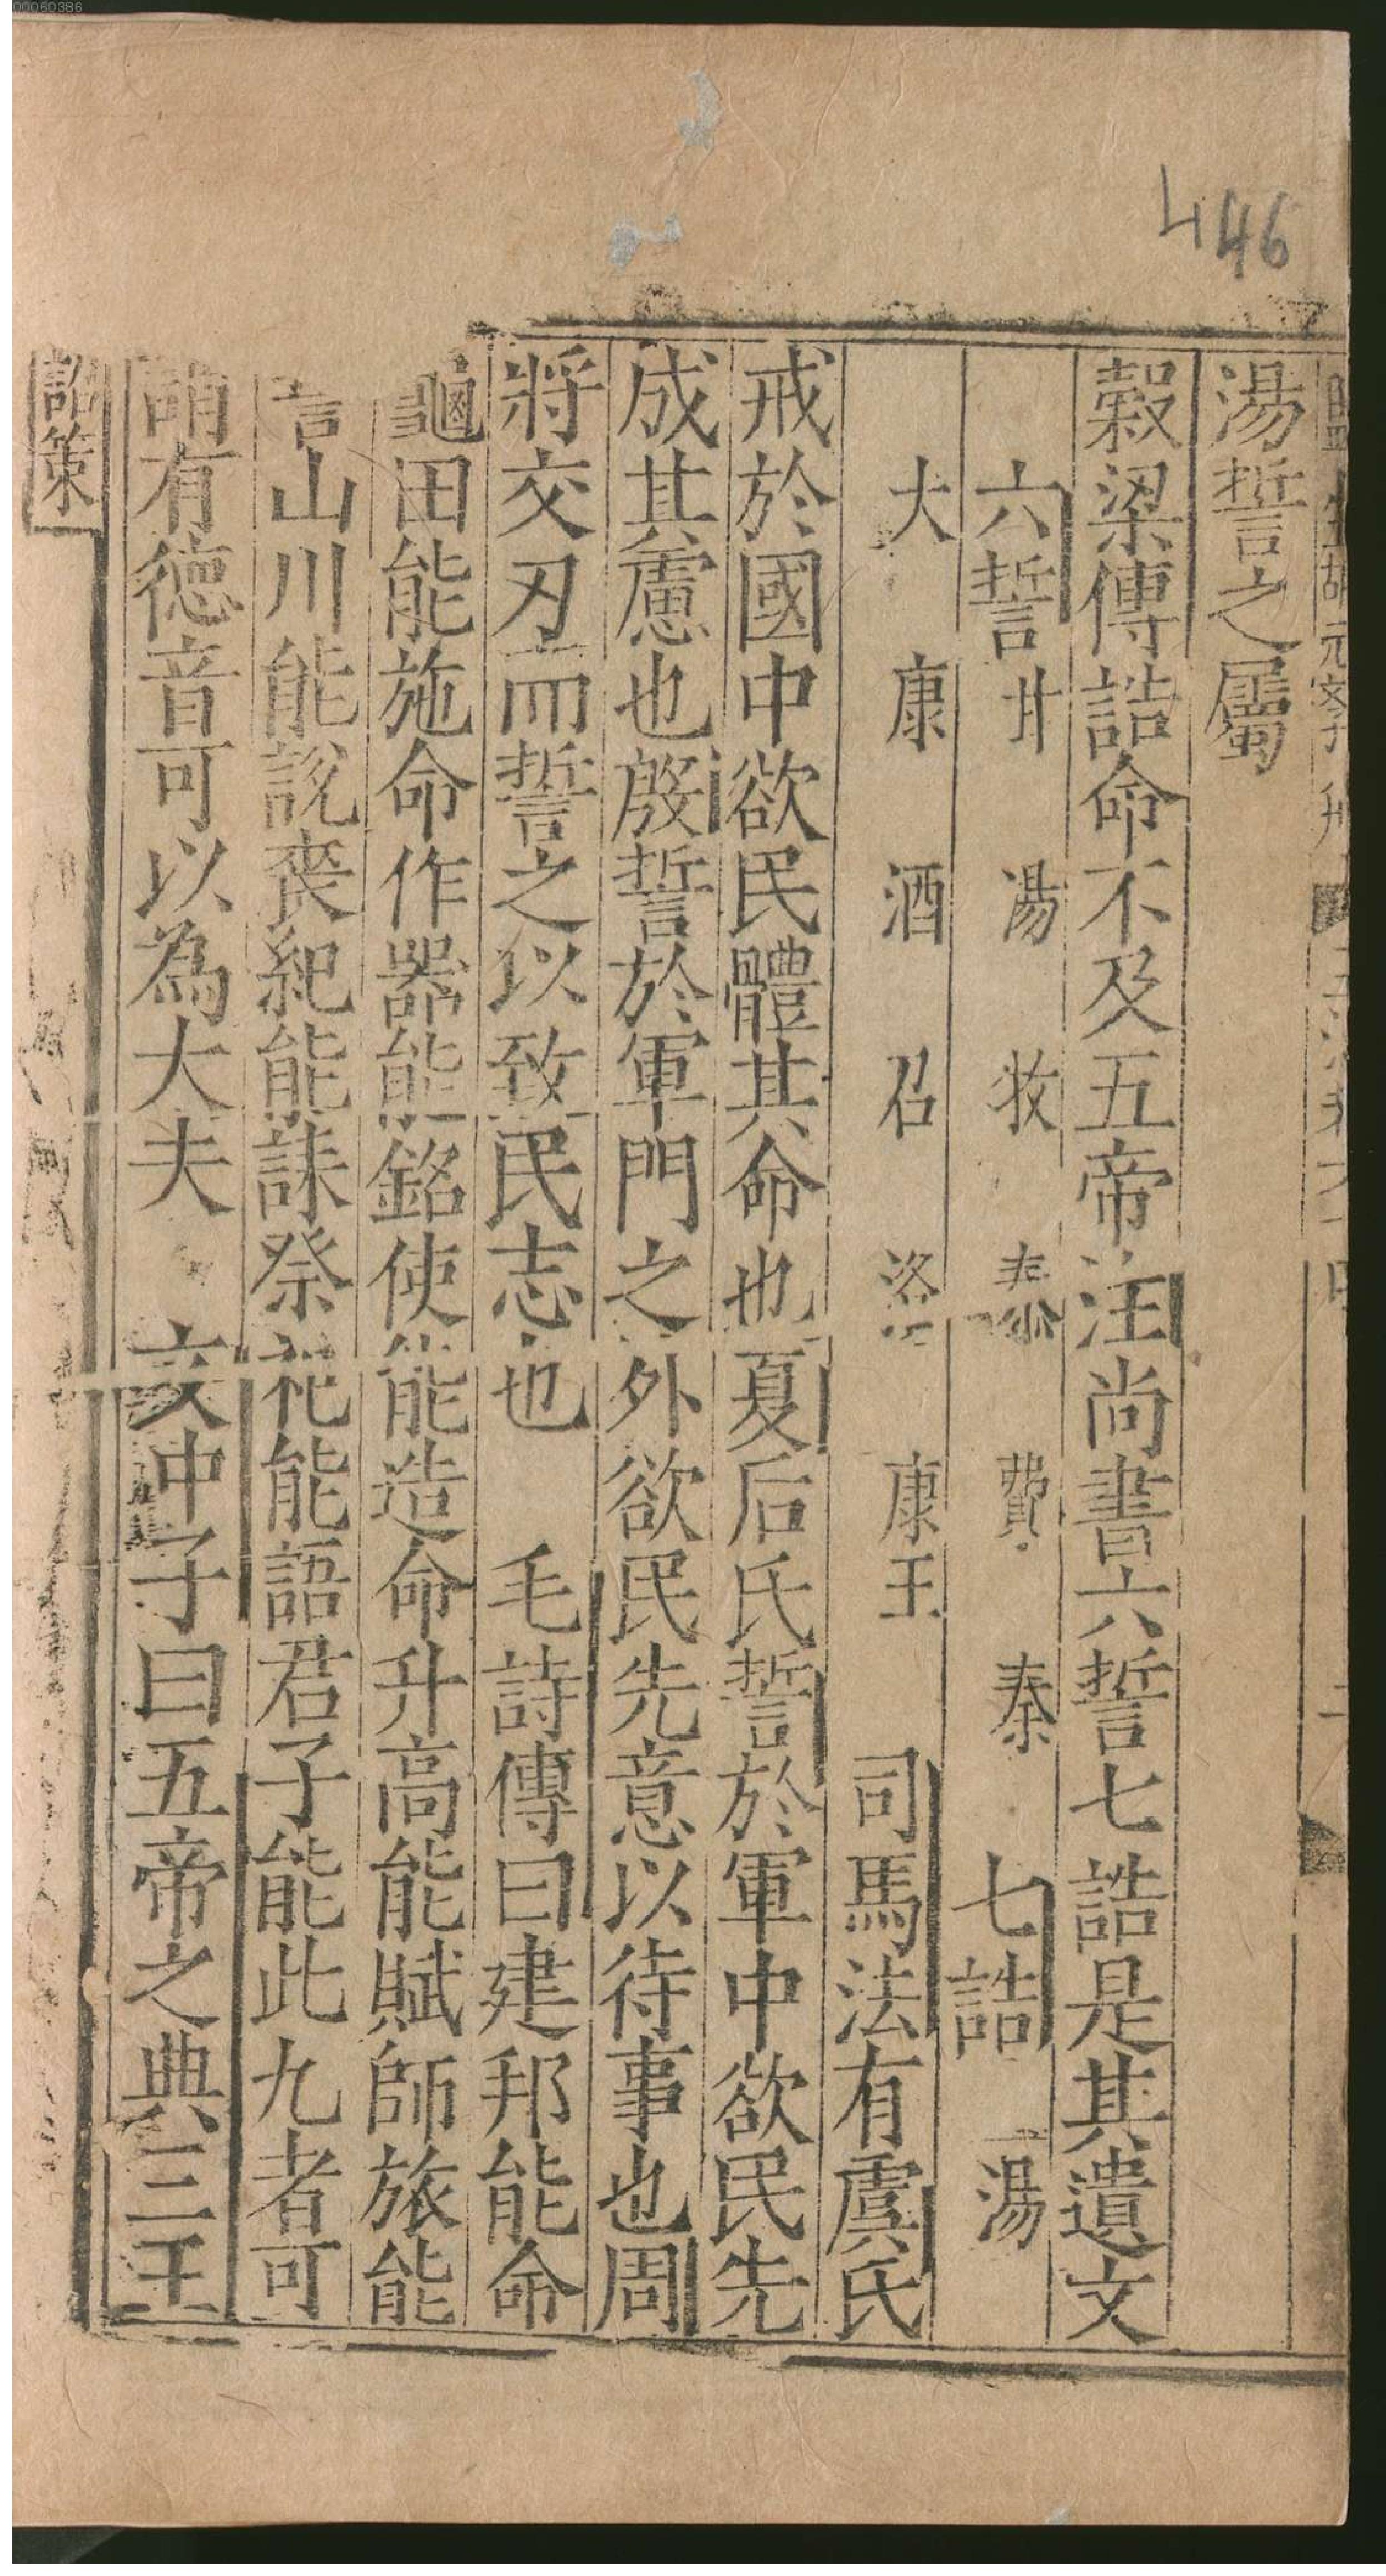 00060386
446
湯誓之屬
糓梁傳誥命不及五帝注尚書六誓七誥是其遺文
六誓甘 湯 牧 泰 費 秦 七誥 湯
大 康 酒 召 洛 康王 司馬法有虞氏
戒於國中欲民體其命也夏后氏誓於軍中欲民先
成其慮也殷誓於軍門之外欲民先意以待事也周
將交刃而誓之以致民志也 毛詩傳曰建邦能命
龜田能施命作器能銘使能造命升高能賦師旅能
誓山川能說喪紀能誄祭祀能語君子能此九者可
謂有德音可以為大夫 文中子曰五帝之典三王
詔策